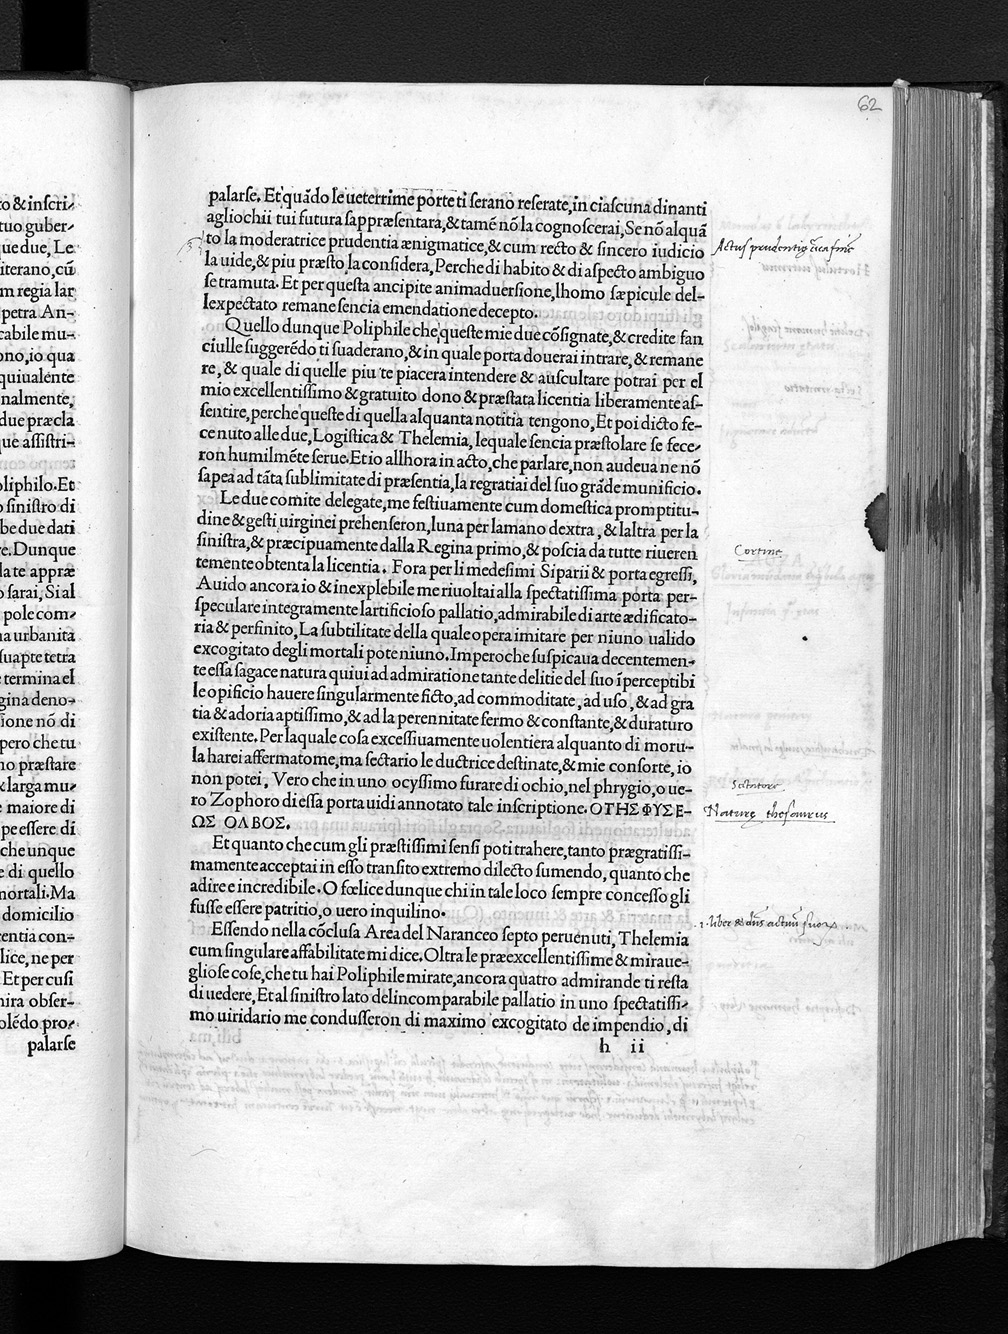 62
to & inscri-
tuo guber-
ue due, Le
iterano, cũ
m regia lar
petra An-
cabile mu-
ono, io qua
quiualente
nalmente,
due præcla
ue assistri-
oliphilo. Et
o sinistro di
be due dati
re. Dunque
late appræ
o sarai, Si al
pole com-
na urbanita
suapte tetra
termina el
gina deno-
ione nõ di
pero che tu
no præstare
& larga mu-
maiore di
pe essere di
che unque
e di quello
mortali. Ma
domicilio
entia con-
lice, ne per
Et per cusi
mira obser-
olẽdo pro-
palarse
palarse. Et quãdo le ueterrime porte ti serano reserate, in ciascuna dinanti
agliochii tui futura sappræsentara, & tamẽ nõ la cognoscerai, Se nõ alquã
to la moderatrice prudentia ænigmatice, & cum recto & sincero iudicio
la uide, & piu præsto la considera, Perche di habito & di aspecto ambiguo
se tramuta. Et per questa ancipite animaduersione, lhomo sæpicule del-
lexpectato remane sencia emendatione decepto.
Quello dunque Poliphile che, queste mie due cõsignate, & credite fan
ciulle suggerẽdo ti suaderano, & in quale porta douerai intrare, & remane
re, & quale di quelle piu te piacera intendere & auscultare potrai per el
mio excellentissimo & gratuito dono & præstata licentia liberamente as-
sentire, perche queste di quella alquanta notitia tengono, Et poi dicto fe-
ce nuto alle due, Logistica & Thelemia, lequale sencia præstolare se fece-
ron humilmẽte serue. Et io allhora in acto, che parlare, non audeua ne nõ
sapea ad tãta sublimitate di præsentia, la regratiai del suo grãde munificio.
Le due comite delegate, me festiuamente cum domestica promptitu-
dine & gesti uirginei prehenseron, luna per lamano dextra, & laltra per la
sinistra, & præcipuamente dalla Regina primo, & poscia da tutte riueren
temente obtenta la licentia. Fora per li medesimi Siparii & porta egressi,
Auido ancora io & inexplebile me riuoltai alla spectatissima porta per-
speculare integramente lartificioso pallatio, admirabile di arte ædificato-
ria & perfinito, La subtilitate della quale opera imitare per niuno ualido
excogitato degli mortali pote niuno. Impero che suspicaua decentemen-
te essa sagace natura quiui ad admiratione tante delitie del suo ĩperceptibi
le opificio hauere singularmente ficto, ad commoditate, ad uso, & ad gra
tia & adoria aptissimo, & ad la perennitate fermo & constante, & duraturo
existente. Per laquale cosa excessiuamente uolentiera alquanto di moru-
la harei affermatome, ma sectario le ductrice destinate, & mie consorte, io
non potei, Vero che in uno ocyssimo furare di ochio, nel phrygio, o ue-
ro Zophoro di essa porta uidi annotato tale inscriptione. ΟΤΗΣ ΦΥΣΕ-
ΩΣ ΟΛΒΟΣ.
Et quanto che cum gli præstissimi sensi poti trahere, tanto prægratissi-
mamente acceptai in esso transito extremo dilecto sumendo, quanto che
adire e incredibile. O fœlice dunque chi in tale loco sempre concesso gli
fusse essere patritio, o uero inquilino.
Essendo nella cõclusa Area del Naranceo septo peruenuti, Thelemia
cum singulare affabilitate mi dice. Oltra le præexcellentissime & miraue-
gliose cose, che tu hai Poliphile mirate, ancora quatro admirande ti resta
di uedere, Et al sinistro lato delincomparabile pallatio in uno spectatissi-
mo uiridario me condusseron di maximo excogitato de impendio, di
h ii
Actus prudentię
Cortine
Sectatore
Naturę thesaurus